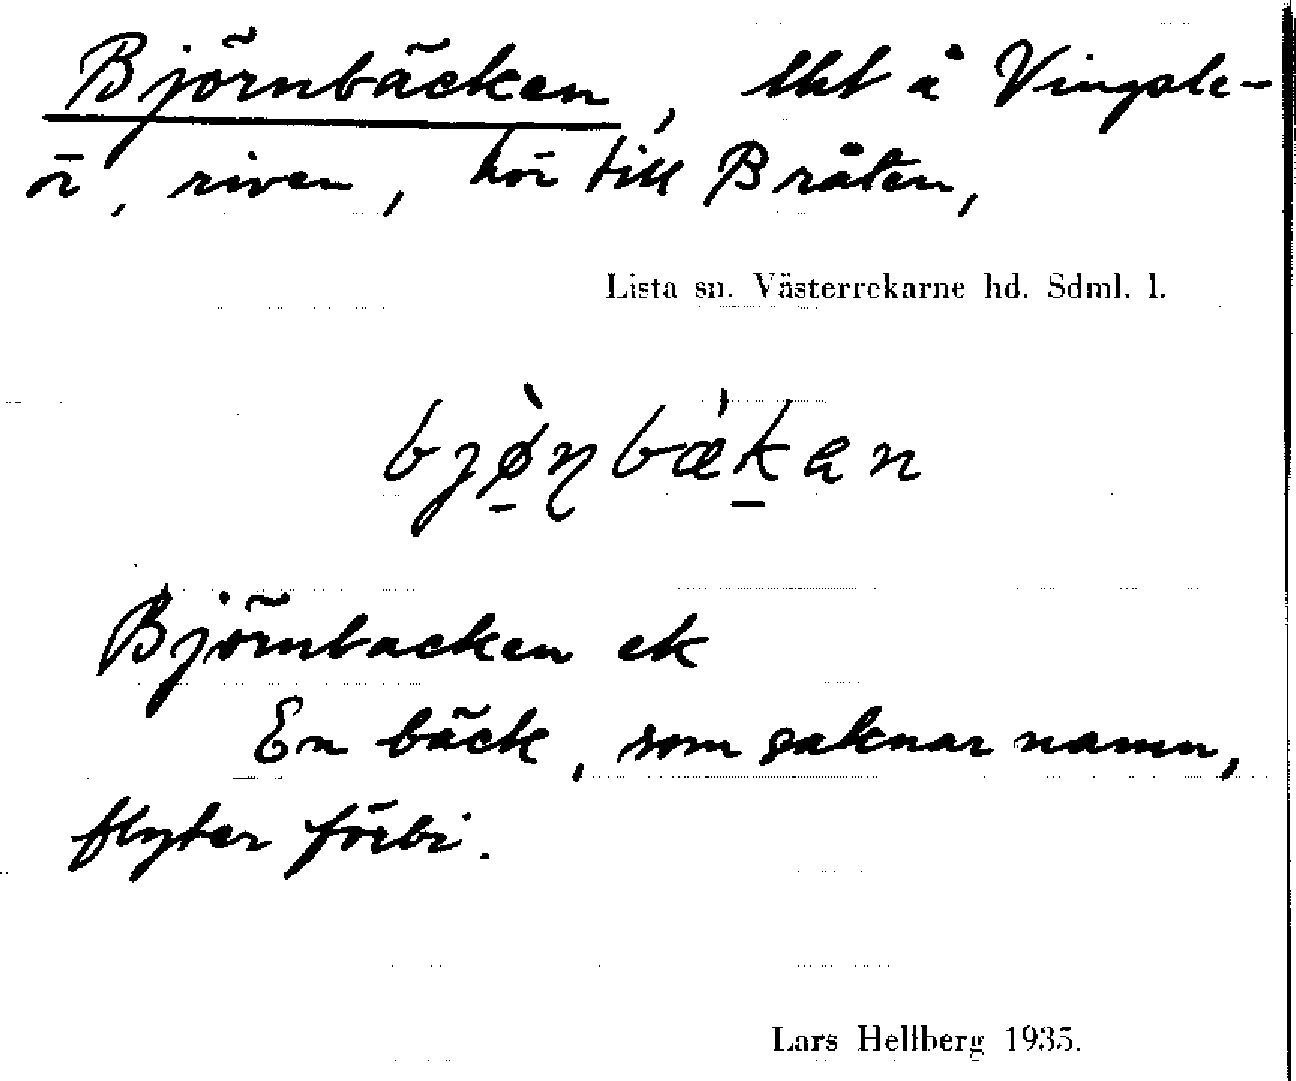 Björnbäcken, lht å Vingsle-
ör, riven, hör till Bråten,
Lista sn. Västerrekarne hd. Sdml. l.
bjø̀ɳbæ̀kan
Björnbacken ek
En bäck, som saknar namn,
flyter förbi.
Lars Hellberg 1935.